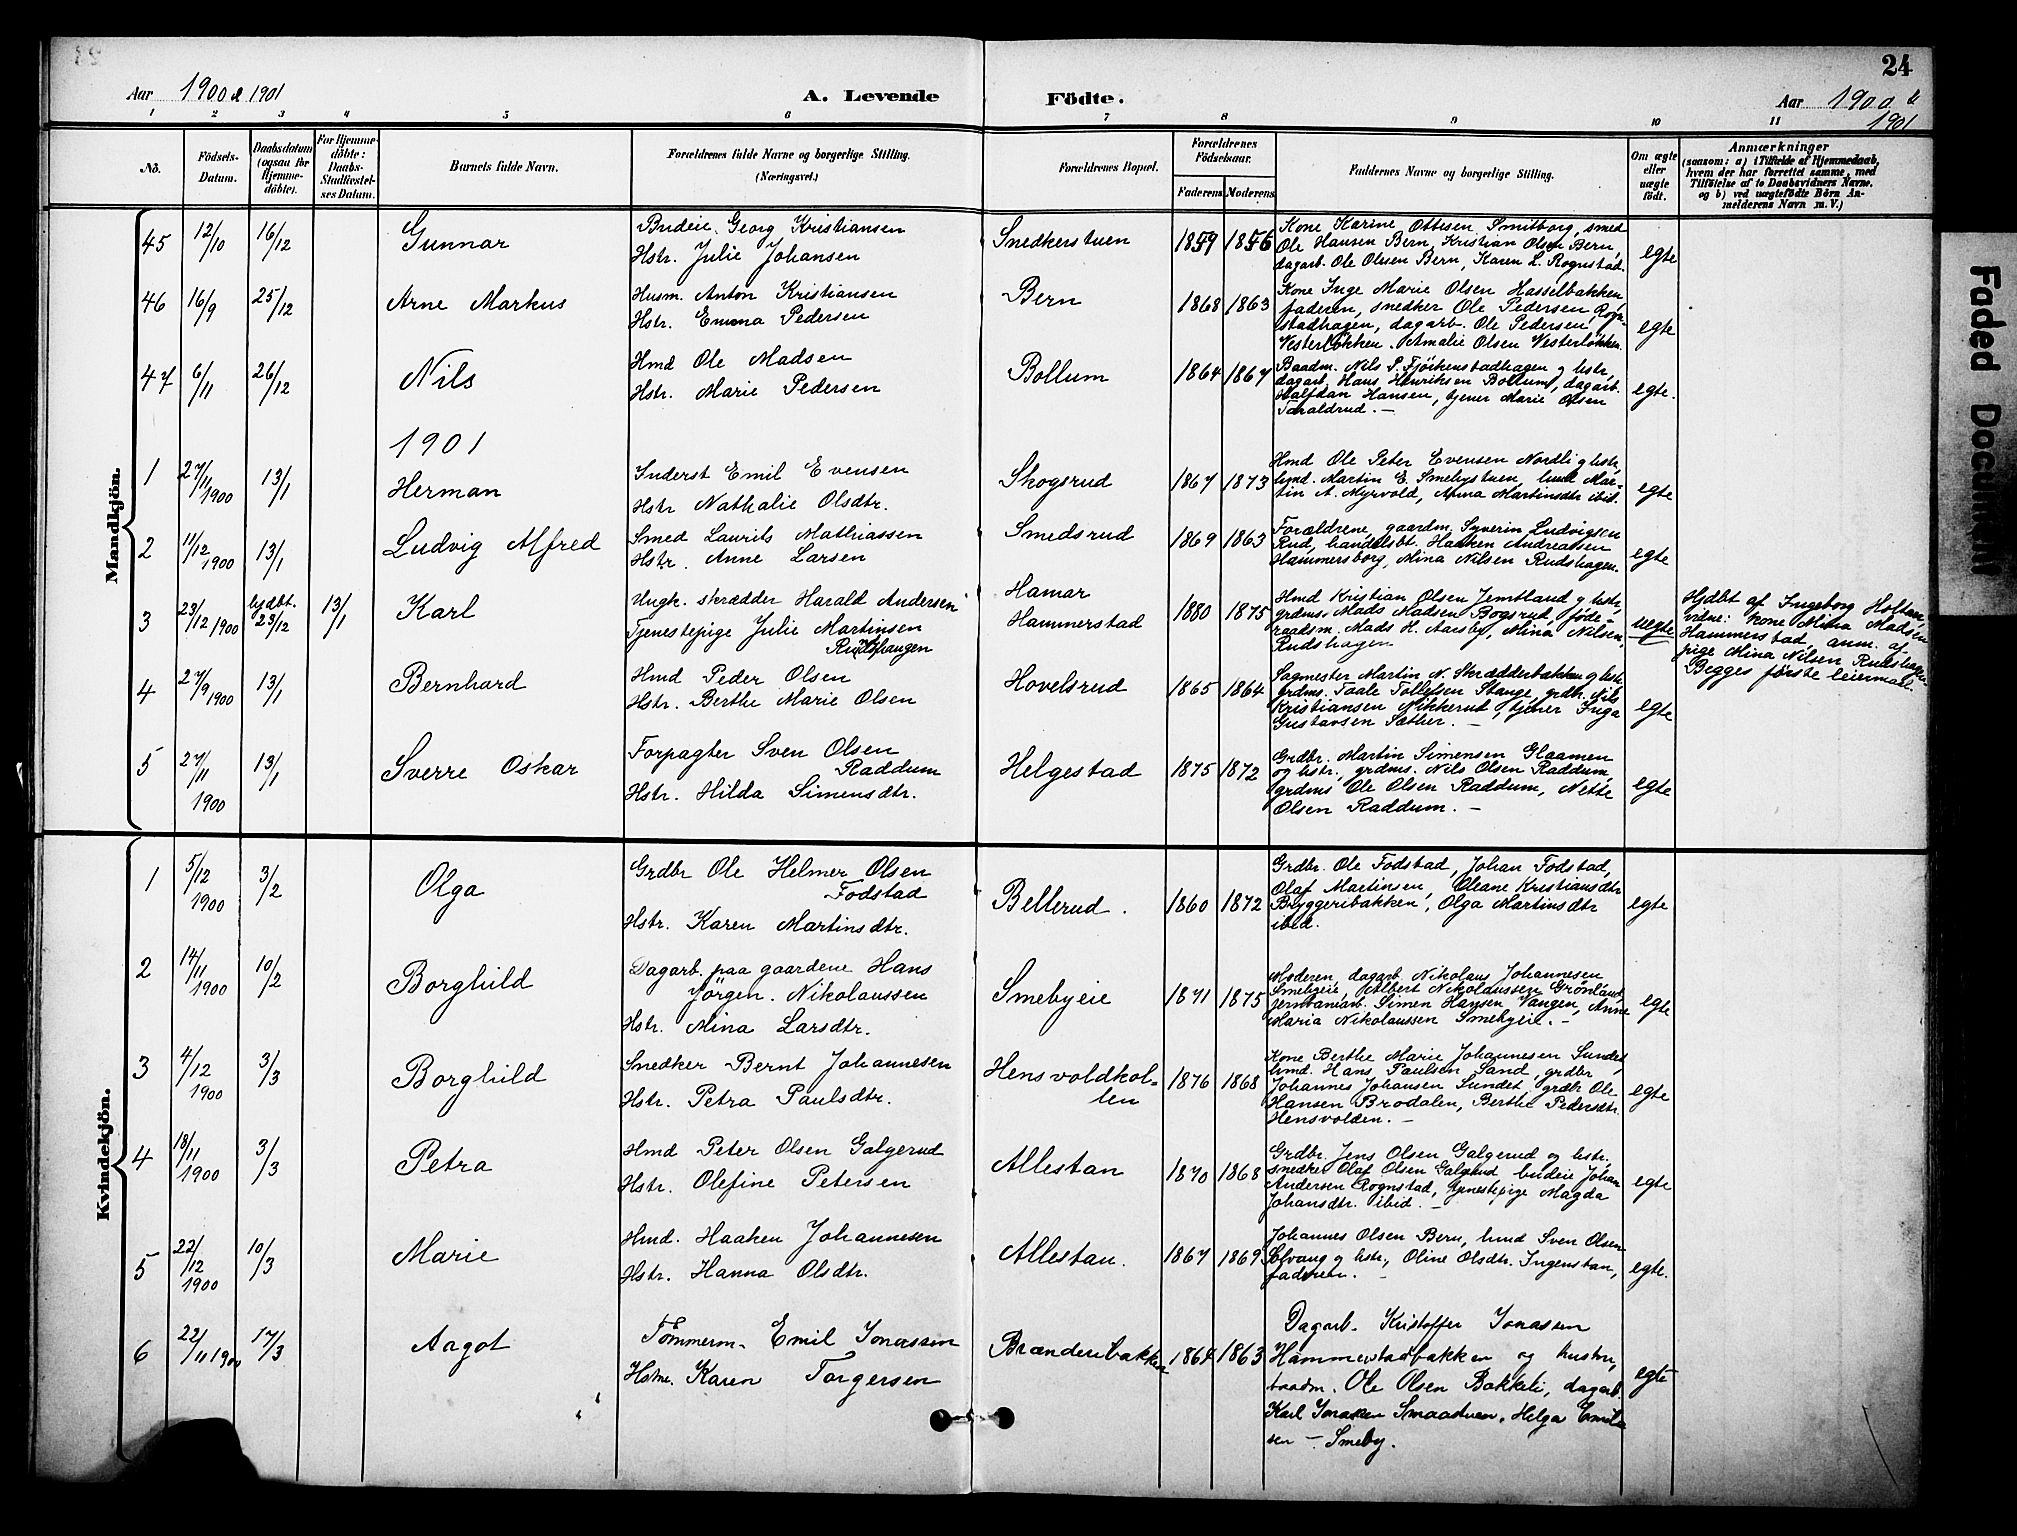 24
Aar 1900 & 1901
A. Levende Födte.
Aar 1900 &
1901
1 2 3 4 5 6 7 8 9 10 11
No.
Födsels-
Datum.
Daabsdatum
(ogsaa for
Hjemme-
döbte).
For Hjemme-
döbte:
Daabs-
Stadfæstel-
ses Datum.
Barnets fulde Navn.
Forældrenes fulde Navne og borgerlige Stilling.
(Næringsvei.)
Forældrenes Bopæl.
Forældrenes
Födselsaar.
Faderens Moderens
Faddernes Navne og borgerlige Stilling.
Om ægte
eller
uægte
födt.
Anmærkninger
(saasom: a) i Tilfælde af Hjemmedaab,
hvem der har forrettet samme, med
Tilföielse af to Daabsvidners Navne,
og b) ved uægtefödte Börn An-
melderens Navn m. V.)
Mandkjön.
45 12/10 16/12 Gunnar
Budeie. Georg Kristiansen
Hstr. Julie Johansen
Snedkerstuen 1859 1856
Kone Karine Ottesen Smitborg, smed
Ole Hansen Bern, Kristian Olsen Bern,
dagarb. Ole Olsen Bern, Karen L. Rognstad.
egte
46 16/9 25/12 Arne Markus
Husm. Anton Kristiansen
Hstr. Emma Pedersen
Bern 1868 1863
Kone Inge Marie Olsen Hasselbakken
faderen, snedker Ole Pedersen Rogn-
stadhagen, dagarb. Ole Pedersen
Vesterløkken. Amalie Olsen Vesterløkken.
egte
47 6/11 26/12 Nils
Hmd Ole Madsen
Hstr. Marie Pedersen
Bollum 1864 1867
Baadm. Nils P. Fjörkenstadhagen og hstr,
dagarb. Hans Henriksen Bollum, dagarb.
Halfdan Hansen, tjener Marie Olsen
Taraldrud. —
egte.
1901
1 27/11 1900 13/1 Herman
Inderst Emil Evensen
Hstr Nathalie Olsdtr.
Skogsrud 1867 1873
Hmd Ole Peter Evensen Nordli og hstr,
hmd. Martin E. Smebystuen, hmd Mar-
tin A. Myrvold, Anna Martinsdtr ibid.
egte
2 11/12 1900 13/1 Ludvig Alfred
Smed Laurits Mathiassen
Hstr. Anne Larsen
Smedsrud 1869 1863
Forældrene, gaardm. Syverin Ludvigsen
Rud, handelsbt. Haaken Andreassen
Hammersborg, Mina Nilsen Rudshagen.
egte
3 23/12 1900 hjdbt. 23/12 13/1 Karl
Ungk. skrædder Harald Andersen
Tjenestepige Julie Martinsen
Rudshaugen
Hamar
Hammerstad 1880 1875
Hmd Kristian Olsen Jemtland og hstr,
grdms. Mads Madsen Bogsrud, föde-
raadsm. Mads H. Aarsby, Mina Nilsen,
Rudshagen
uegte
Hjdbt af Ingeborg Holtan,
vidne: kone Mina Madsen
Hammerstad, anm. af
pige Mina Nilsen Rudshagen.
Begges første leiermaal.
4 27/9 1900 13/1 Bernhard
Hmd Peder Olsen
Hstr. Berthe Marie Olsen
Hovelsrud 1865 1864
Sagmester Martin N. Skrædderbakken og hstr.
grdms. Taale Tollefsen Stange, grdbr. Nils
Kristiansen Nikkerud, tjener Inga
Gustavsen Sæther. —
egte
5 27/11 1900 13/1 Sverre Oskar
Forpagter Sven Olsen
Raddum
Hstr. Hilda Simensdtr.
Helgestad 1875 1872
Grdbr. Martin Simensen Glaamen
og hstr., grdms. Nils Olsen Raddum,
grdms Ole Olsen Raddum, Nette
Olsen Raddum. —
egte
Kvindekjön.
1 5/12 1900 3/2 Olga
Grdbr Ole Helmer Olsen
Fodstad
Hstr. Karen Martinsdtr.
Bellerud. 1860 1872
Grdbr. Ole Fodstad, Johan Fodstad,
Olaf Martinsen, Oleane Kristiansdtr
Bryggeribakken, Olga Martinsdtr
ibid.
egte
2 14/11 1900 10/2 Borghild
Dagarb. paa gaardene Hans
Jörgen. Nikolaussen
Hstr. Mina Larsdtr.
Smebyeie 1871 1875
Moderen, dagarb. Nikolaus Johannesen
Smebyeie, Albert Nikolaussen Grönland,
jernbanearb. Simen Hansen Vangen, Anne
Maria Nikolaussen Smebyeie. —
egte
3 4/12 1900 3/3 Borghild
Snedker Bernt Johannesen
Hstr. Petra Paulsdtr.
Hensvoldkol-
len 1876 1868
Kone Berthe Marie Johannesen Sundet,
hmd. Hans Paulsen Sand, grdbr
Johannes Johansen Sundet, grdbr Ole
Hansen Brodalen, Berthe Pedersdtr.
Hensvolden. —
egte
4 18/11 1900 3/3 Petra
Hmd Peter Olsen Galgerud
Hstr. Olefine Petersen
Allestan 1870 1868
Grdbr. Jens Olsen Galgerud og hstr.
snedker Olaf Olsen Galgerud budeie Johan
Andersen Rognstad, tjenestepige Magda
Johansdtr. ibid. —
egte
5 22/12 1900 10/3 Marie
Hmd. Haaken Johannesen
Hstr. Hanna Olsdtr.
Allestan. 1867 1869
Johannes Olsen Bern, hmd Sven Olsen
Solvang og hstr., Oline Olsdtr. Ingenstan,
faderen. —
egte.
6 22/11 1900 17/3 Aagot
Tömmerm. Emil Jonassen
Hstr. Karen Torgersen
Brænderibakken 1864 1863
Dagarb. Kristoffer Jonassen
Hammerstadbakken og hustru,
baadm. Ole Olsen Bakkeli, dagarb.
Karl Jonassen Smaastuen. Helga Emil-
sen — Smeby.
egte
Faded Document